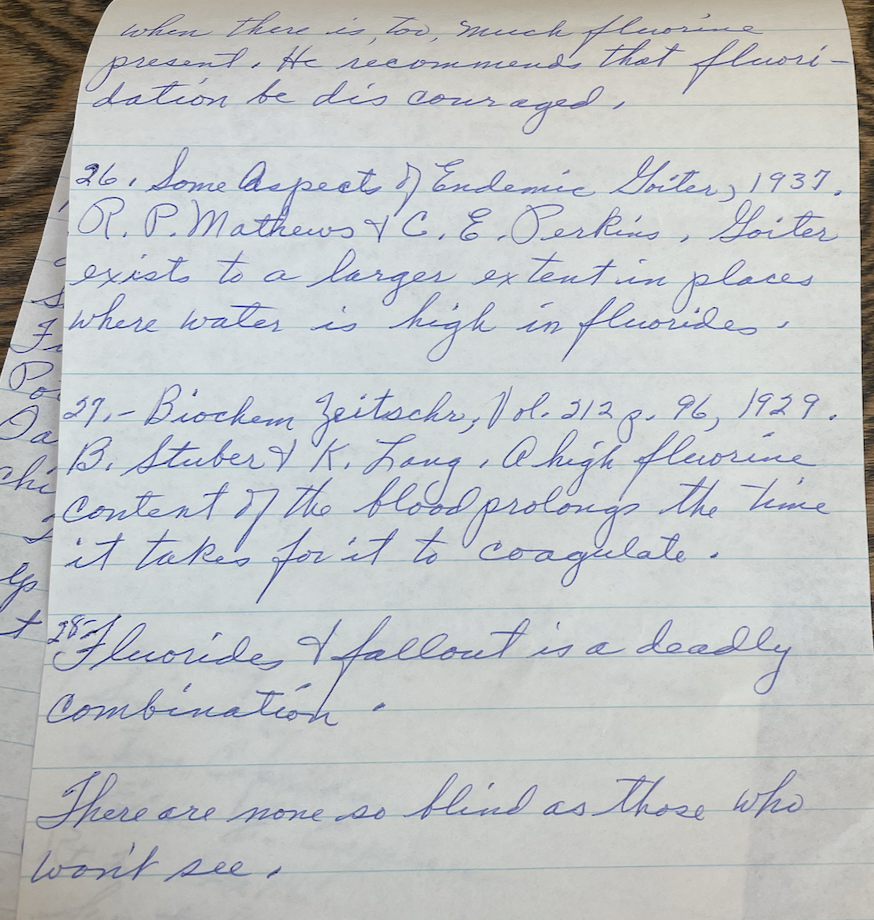 when there is, too, much fluorine
present. He recommends that fluori-
dation be dis couraged.
26. Some Aspects of Endemic Goiter, 1937.
R. P. Mathews & C. E. Perkins. Goiter
exists to a larger extent in places
where water is high in fluorides.
27.- Biochem Zeitschr, Vol. 212 p. 96, 1929.
B. Stuber & K. Lang. A high fluorine
content of the blood prolongs the time
it takes for it to coagulate.
28- Fluorides & fallout is a deadly
combination.
There are none so blind as those who
won't see.